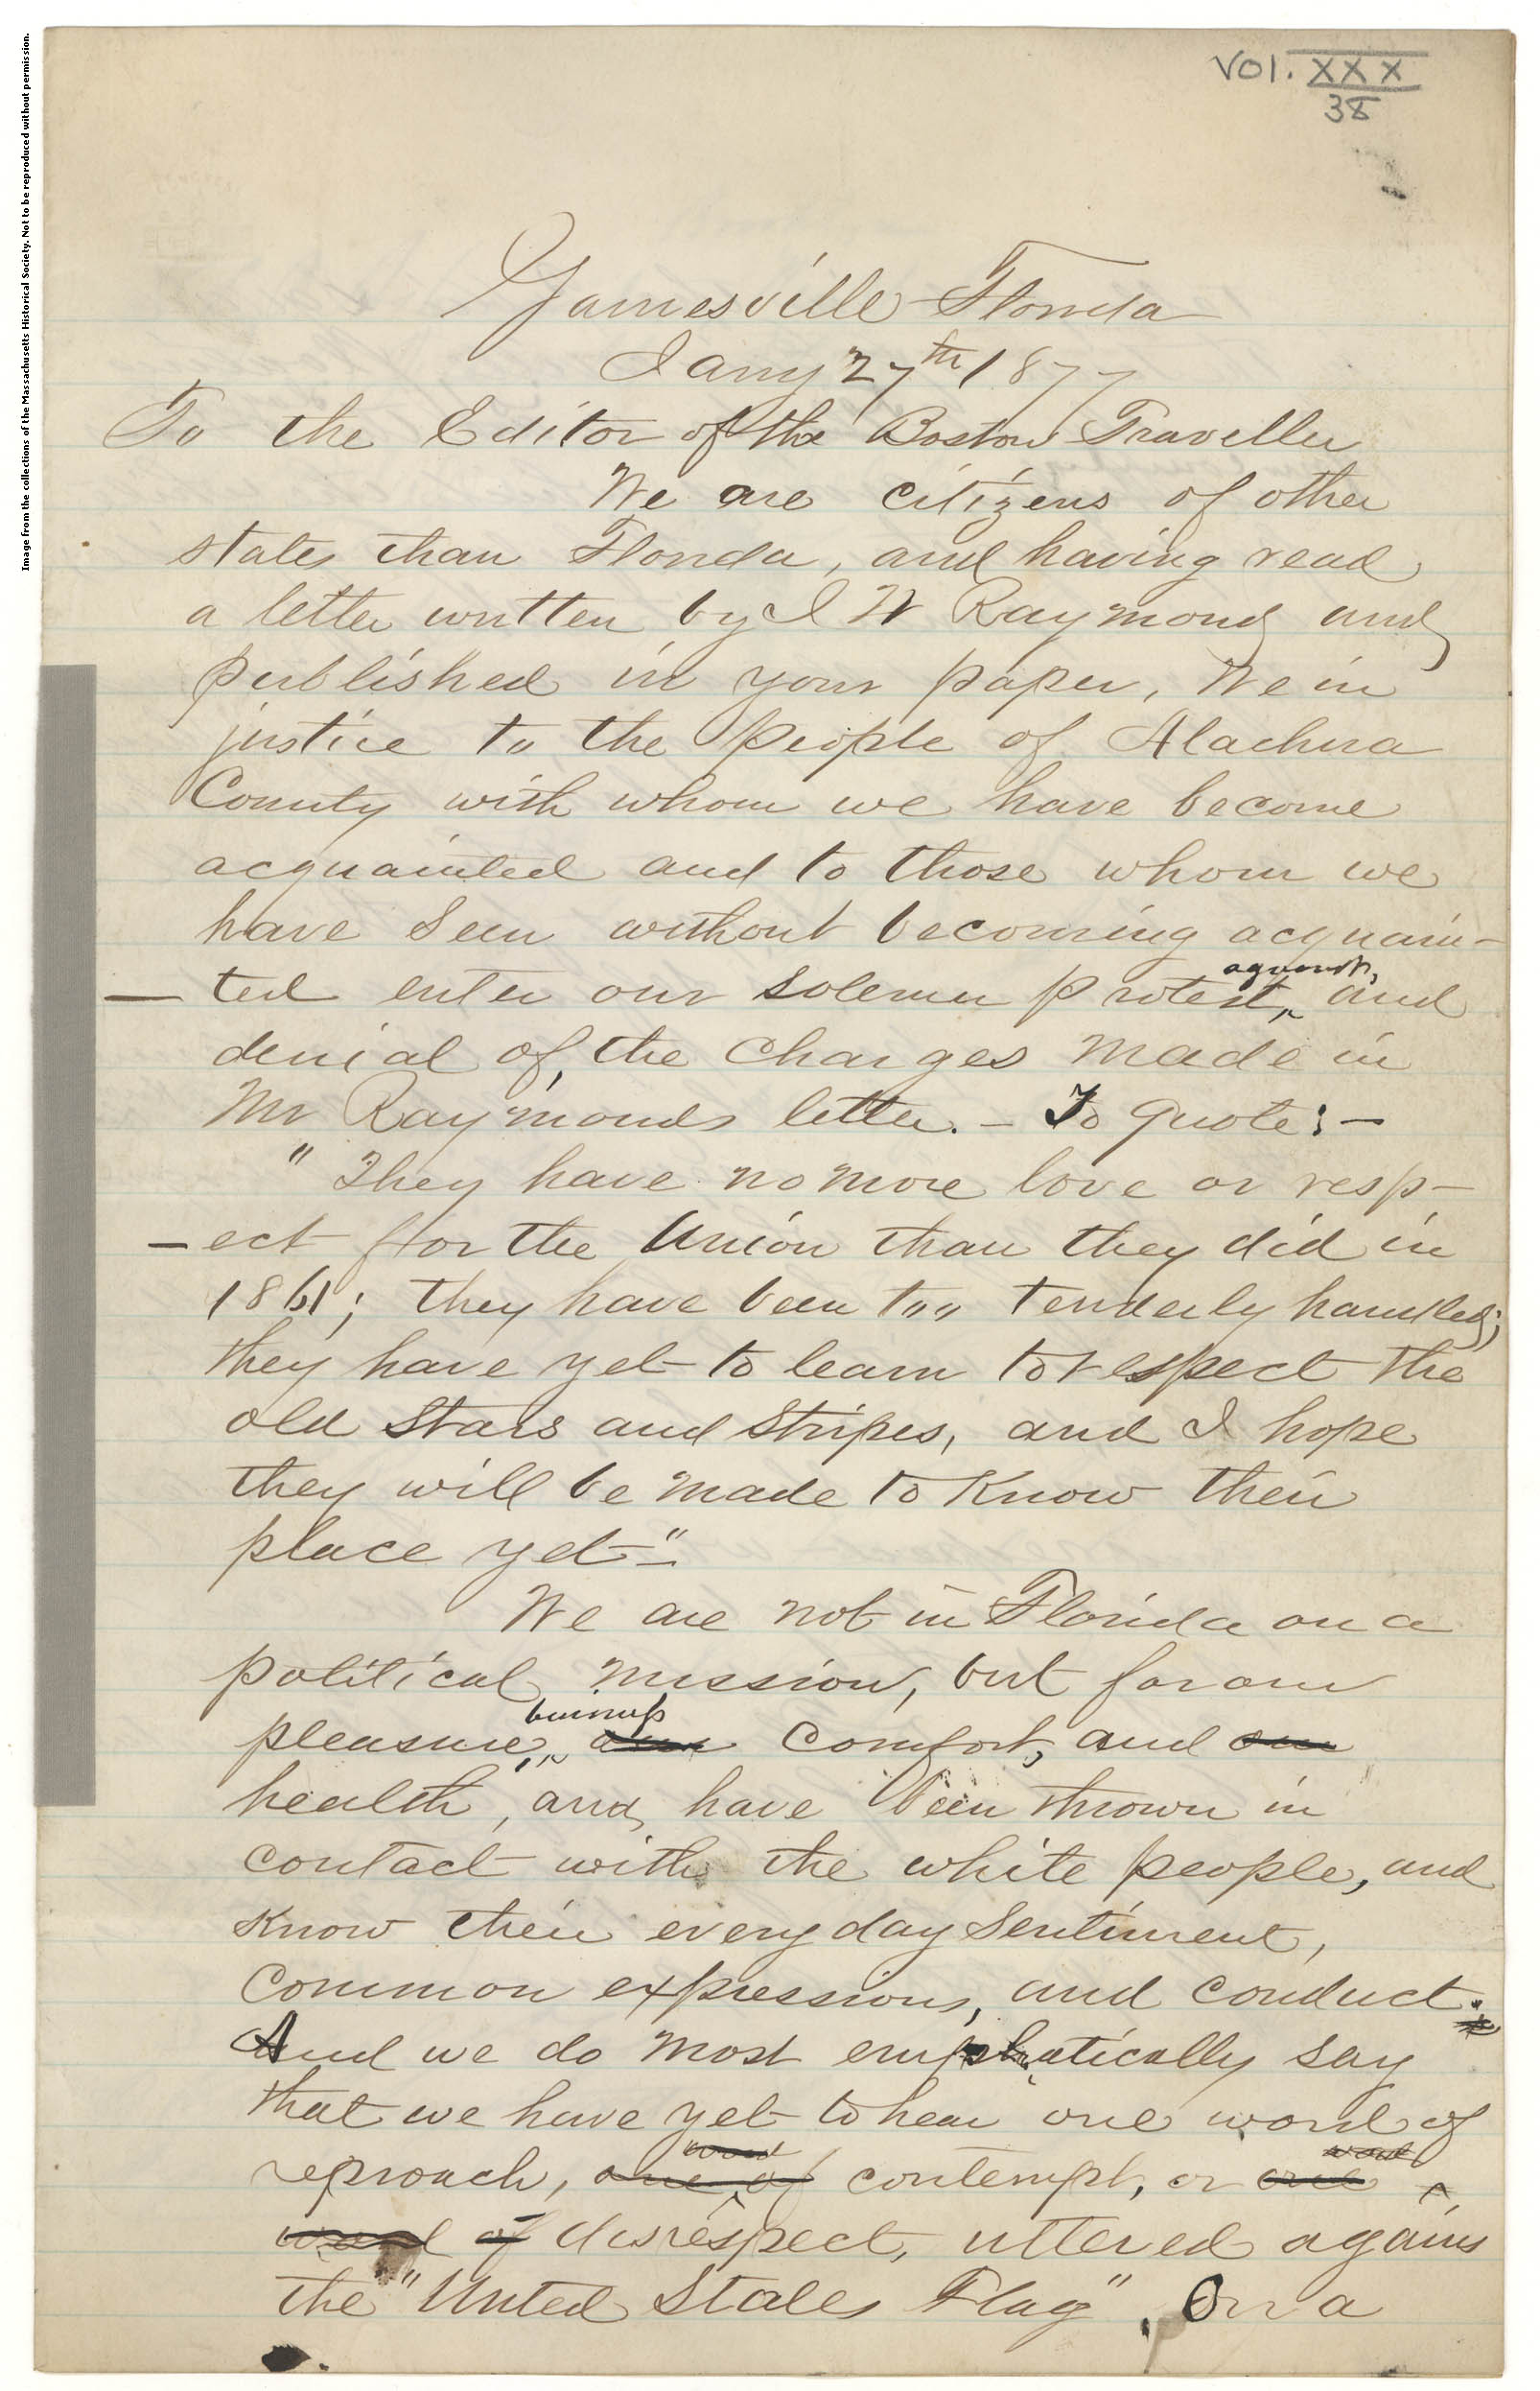 Image from the collections of the Massachusetts Historical Society. Not to be reproduced without permission.
Vol. XXX
38
Gainesville Florida
Jany 27th 1877
To the Editor of the Boston Traveller
We are citizens of other
states than Florida, and having read
a letter written by J W Raymond and
published in your paper, We in
justice to the people of Alachua
County with whom we have become
acquainted and to those whom we
have seen without becoming acquain-
-ted enter our solemn protest, against, and
denial of, the charges made in
Mr Raymonds letter. - To quote: -
"They have no more love or resp-
-ect for the Union than they did in
1861; they have been too tenderly handled;
they have yet to learn to respect the
old Stars and Stripes, and I hope
they will be made to know their
place yet"-
We are not in Florida on a
political mission, but for our
pleasure, business our comfort, and our
health, and have been thrown in
contact with the white people, and
know their every day sentiment,
common expressions, and conduct.
And we do most emphatically say
that we have yet to hear one word of
reproach, one word of contempt, or one word
word of disrespect, uttered agains
the "United States Flag". On a